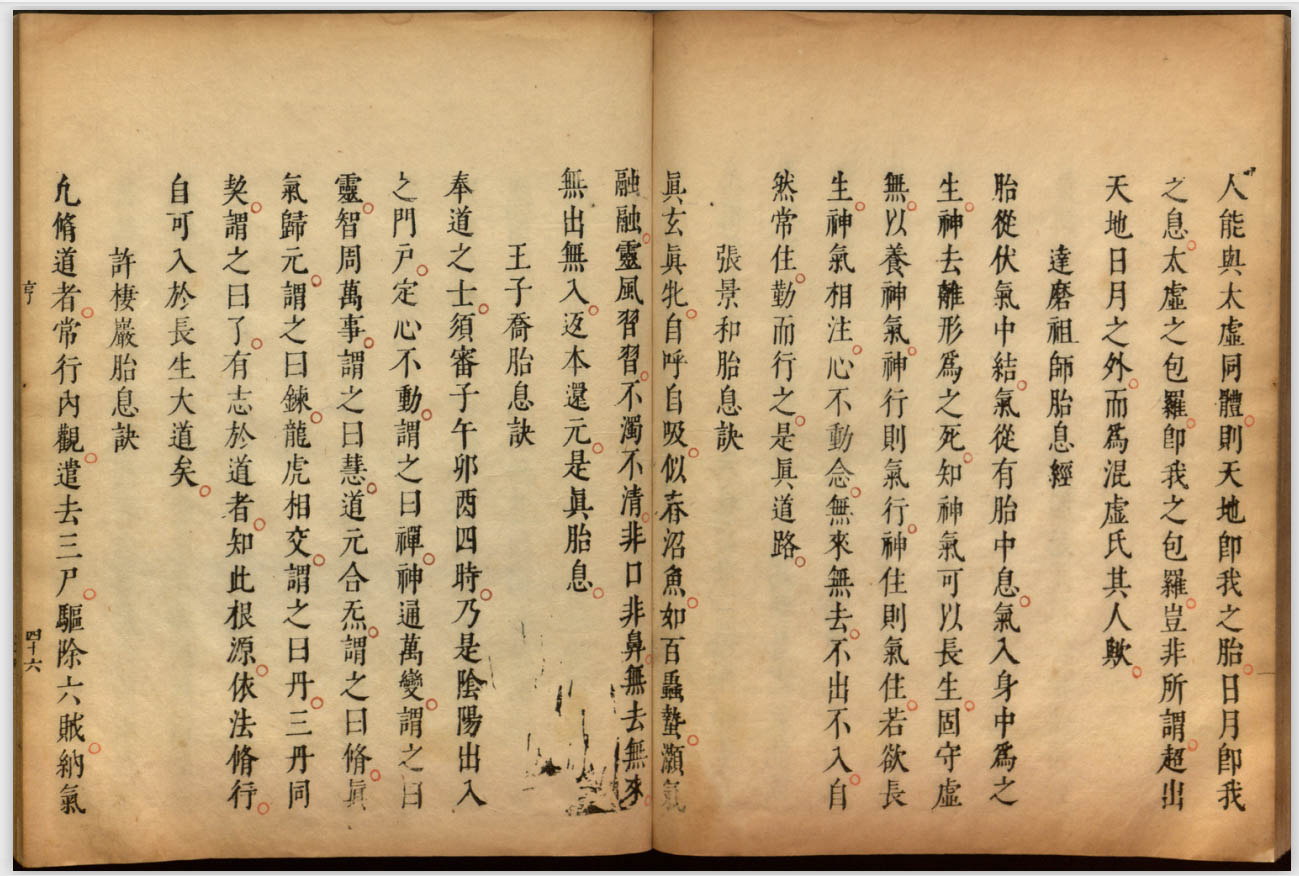 人能與太虛同體則天地卽我之胎日月卽我
之息太虛之包羅卽我之包羅豈非所謂超出
天地日月之外而爲混虛氏其人歟
達磨祖師胎息經
胎從伏氣中結氣從有胎中息氣入身中爲之
生神去離形爲之死知神氣可以長生固守虛
無以養神氣神行則氣行神住則氣住若欲長
生神氣相注心不動念無來無去不出不入自
然常住勤而行之是眞道路
張景和胎息訣
眞玄眞牝自呼自吸似春沼魚如百蟲蟄灝氣
融融靈風習習不濁不清非口非鼻無去無來
無出無入返本還元是眞胎息
王子喬胎息訣
奉道之士須審子午卯酉四時乃是陰陽出入
之門戶定心不動謂之曰禪神通萬變謂之曰
靈智周萬事謂之曰慧道元合炁謂之曰脩眞
氣歸元謂之曰鍊龍虎相交謂之曰丹三丹同
契謂之曰了有志於道者知此根源依法脩行
自可入於長生大道矣
許棲巖胎息訣
凢脩道者常行內觀遣去三尸驅除六賊納氣
亨
四十六